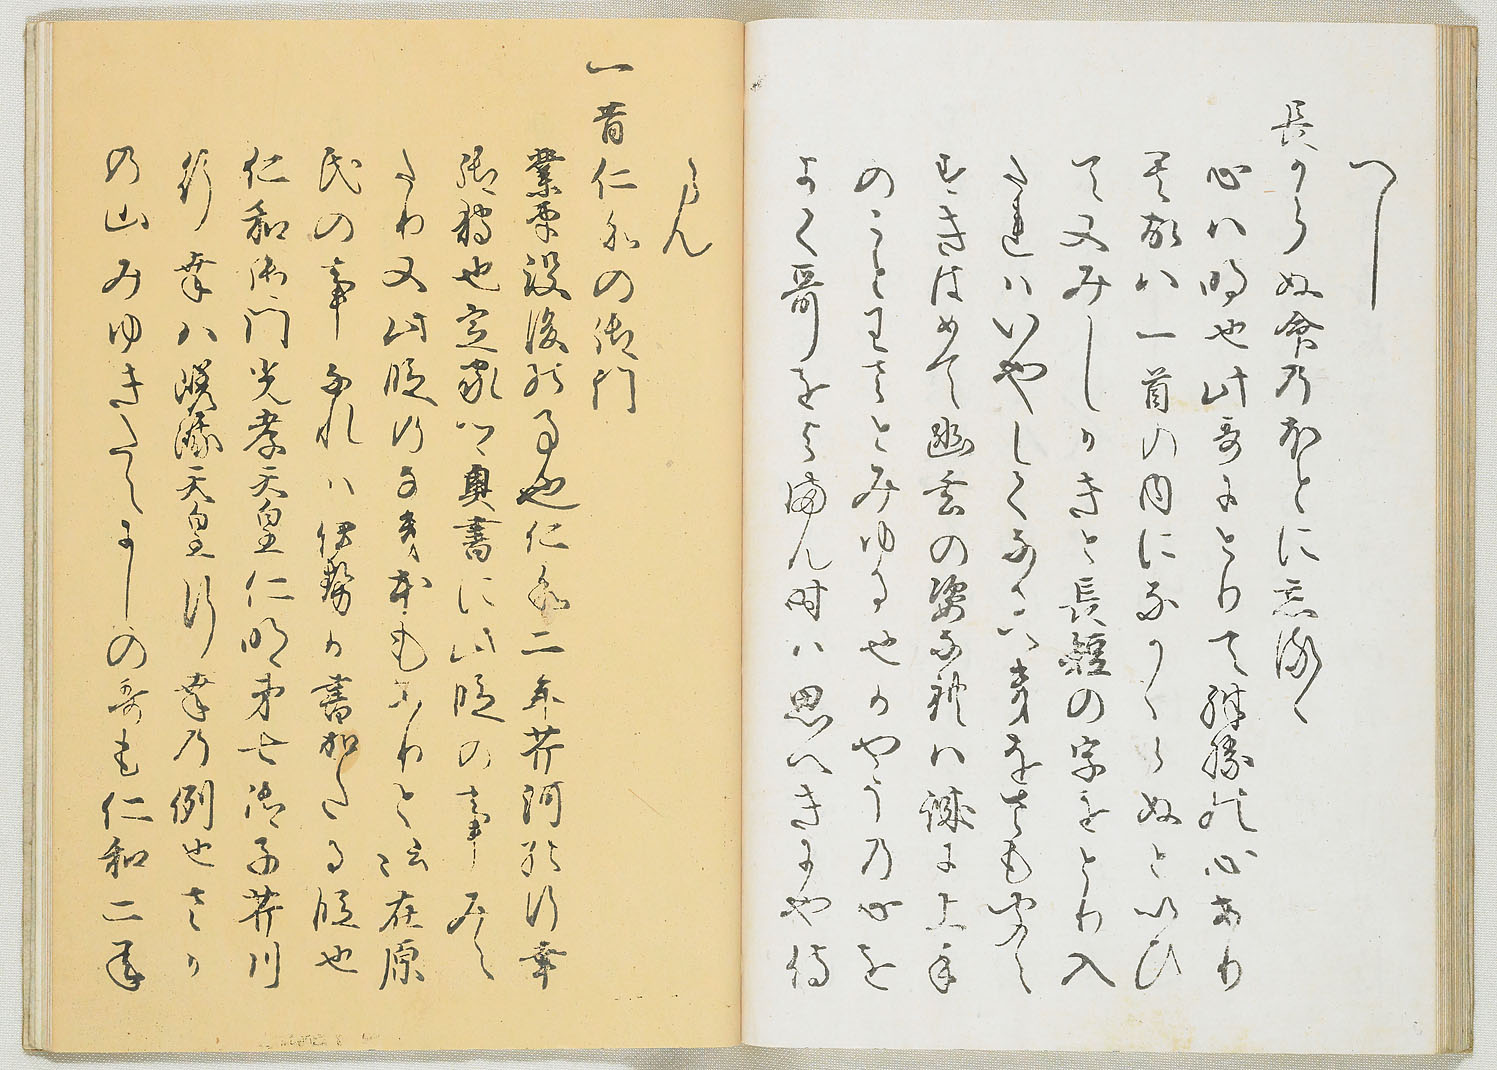 へし
長からぬ命乃ほとに忘るゝ
心ハ明也此哥よとりて殊勝の心あり
其故ハ一首の内に永からぬといひ
て又みしかきと長短の字をとり入
たれハいやしく
すきはめて幽玄の姿なれハ誠に上手
のことわさとみゆる也かやうの心を
よく哥をよまん時ハ思へきにや侍
らん
一昔仁和の御門
業平没後の事也仁和二年芹河の行幸
御鷹也定家ハ奥書に此段の事みえ
たり又此段のなき本もありと云在原
氏の事なれハ伊勢か書加たる段也
仁和御門光孝天皇仁明第七御子芹川
行幸ハ嵯峨天皇行幸乃例也されハ
の山みゆきたえにしの哥も仁和二年